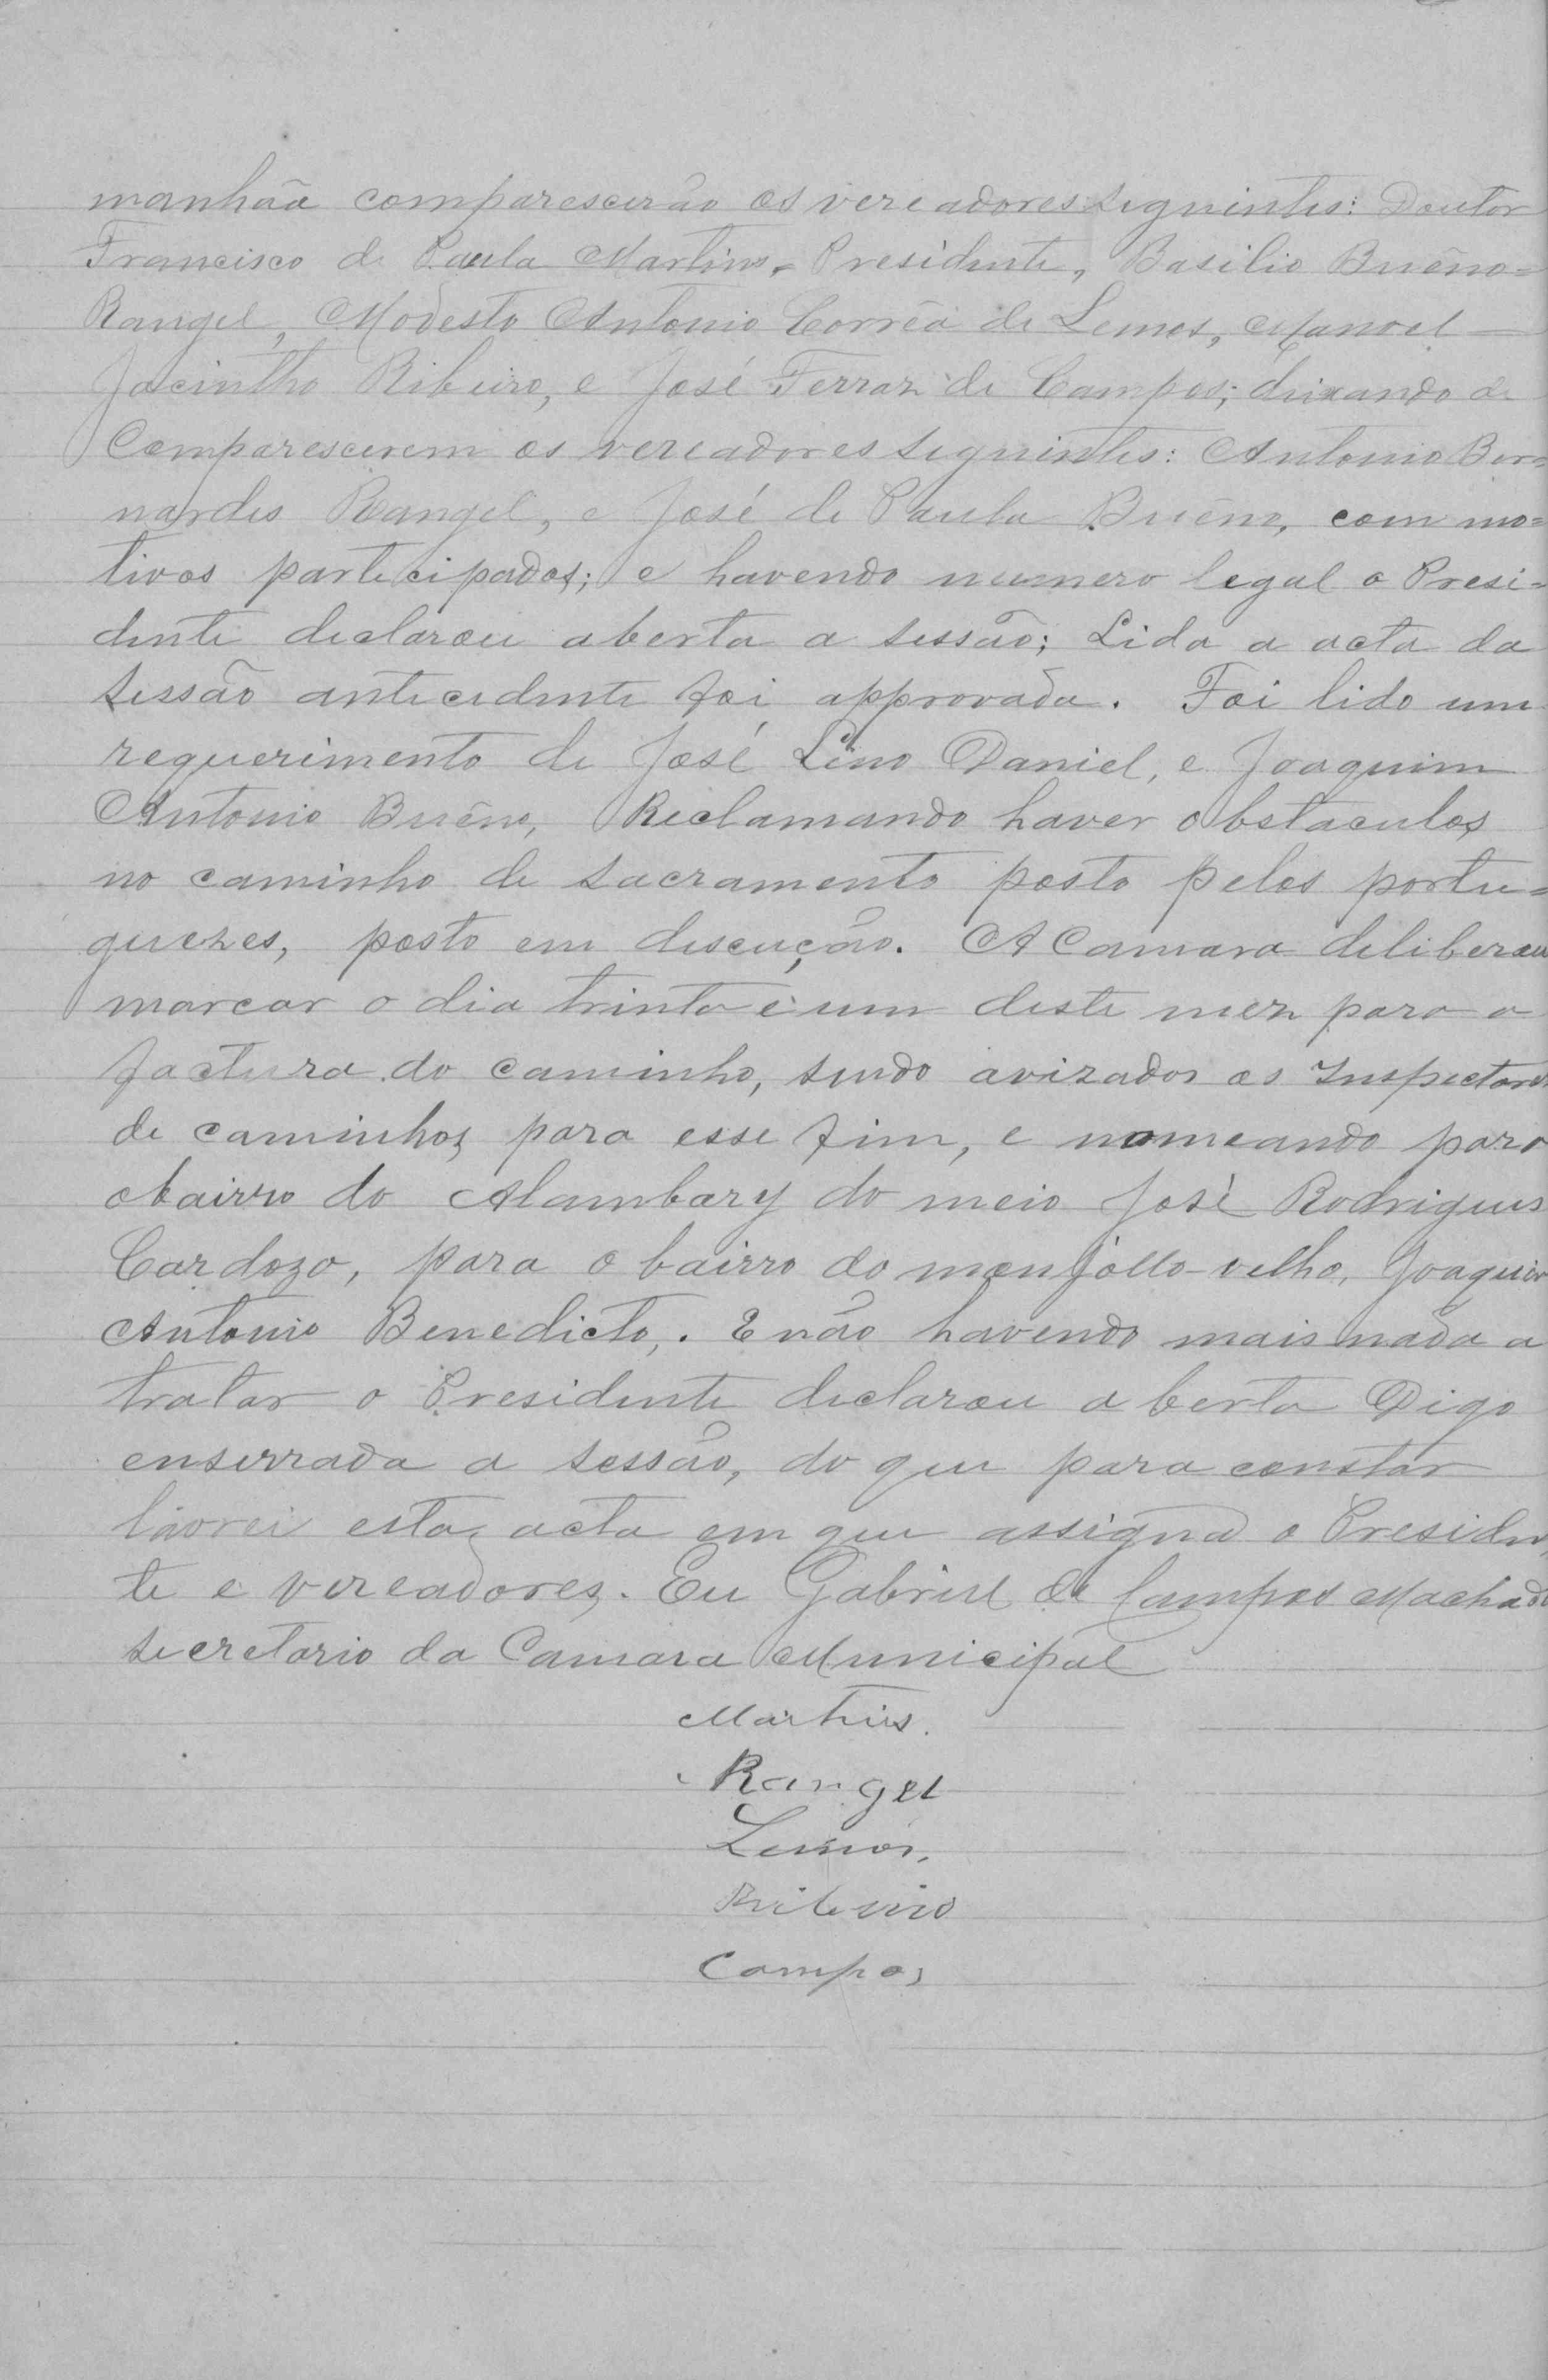 manhãa comparescerão os vereadores seguintes: Doutor
Francisco de Paula Martins, Presidente, Basilio Buêno=
Rangel, Modesto Antonio Corrêa de Lemos, Manoel
Jacintho Ribeiro, e José Ferraz de Campos; deixando de
Comparescerem os vereadores seguintes: Antonio Ber=
nardes Rangel, e José de Paula Buêno, com mo=
tivos participados; e havendo numero legal o Presi=
dente declarou aberta a sessão; Lida a acta da
sessão antecedente foi approvada. Foi lido um
requerimento de José Lino Daniel, e Joaquim
Antonio Buêno, Reclamando haver obstaculos
no caminho de sacramento posto pelos portu=
guezes, posto em descução. A Camara deliberou
marcar o dia trinta e um deste mez para a
factura do caminho, sendo avizados os Inspectores
de caminhos para esse fim, e nomeando para
o bairro do Alambary do meio José Rodrigues
Cardozo, para o bairro do monjollo-velho, Joaquim
Antonio Benedicto,. E não havendo mais nada a
tratar o Presidente declarou aberta Digo
enserrada a sessão, do que para constar
lavrei esta acta em que assigna o Presiden
te e vereadores. Eu Gabriel de Campos Machado
secretario da Camara Municipal
Martins.
Rangel
Lemos,
Ribeiro
Campos